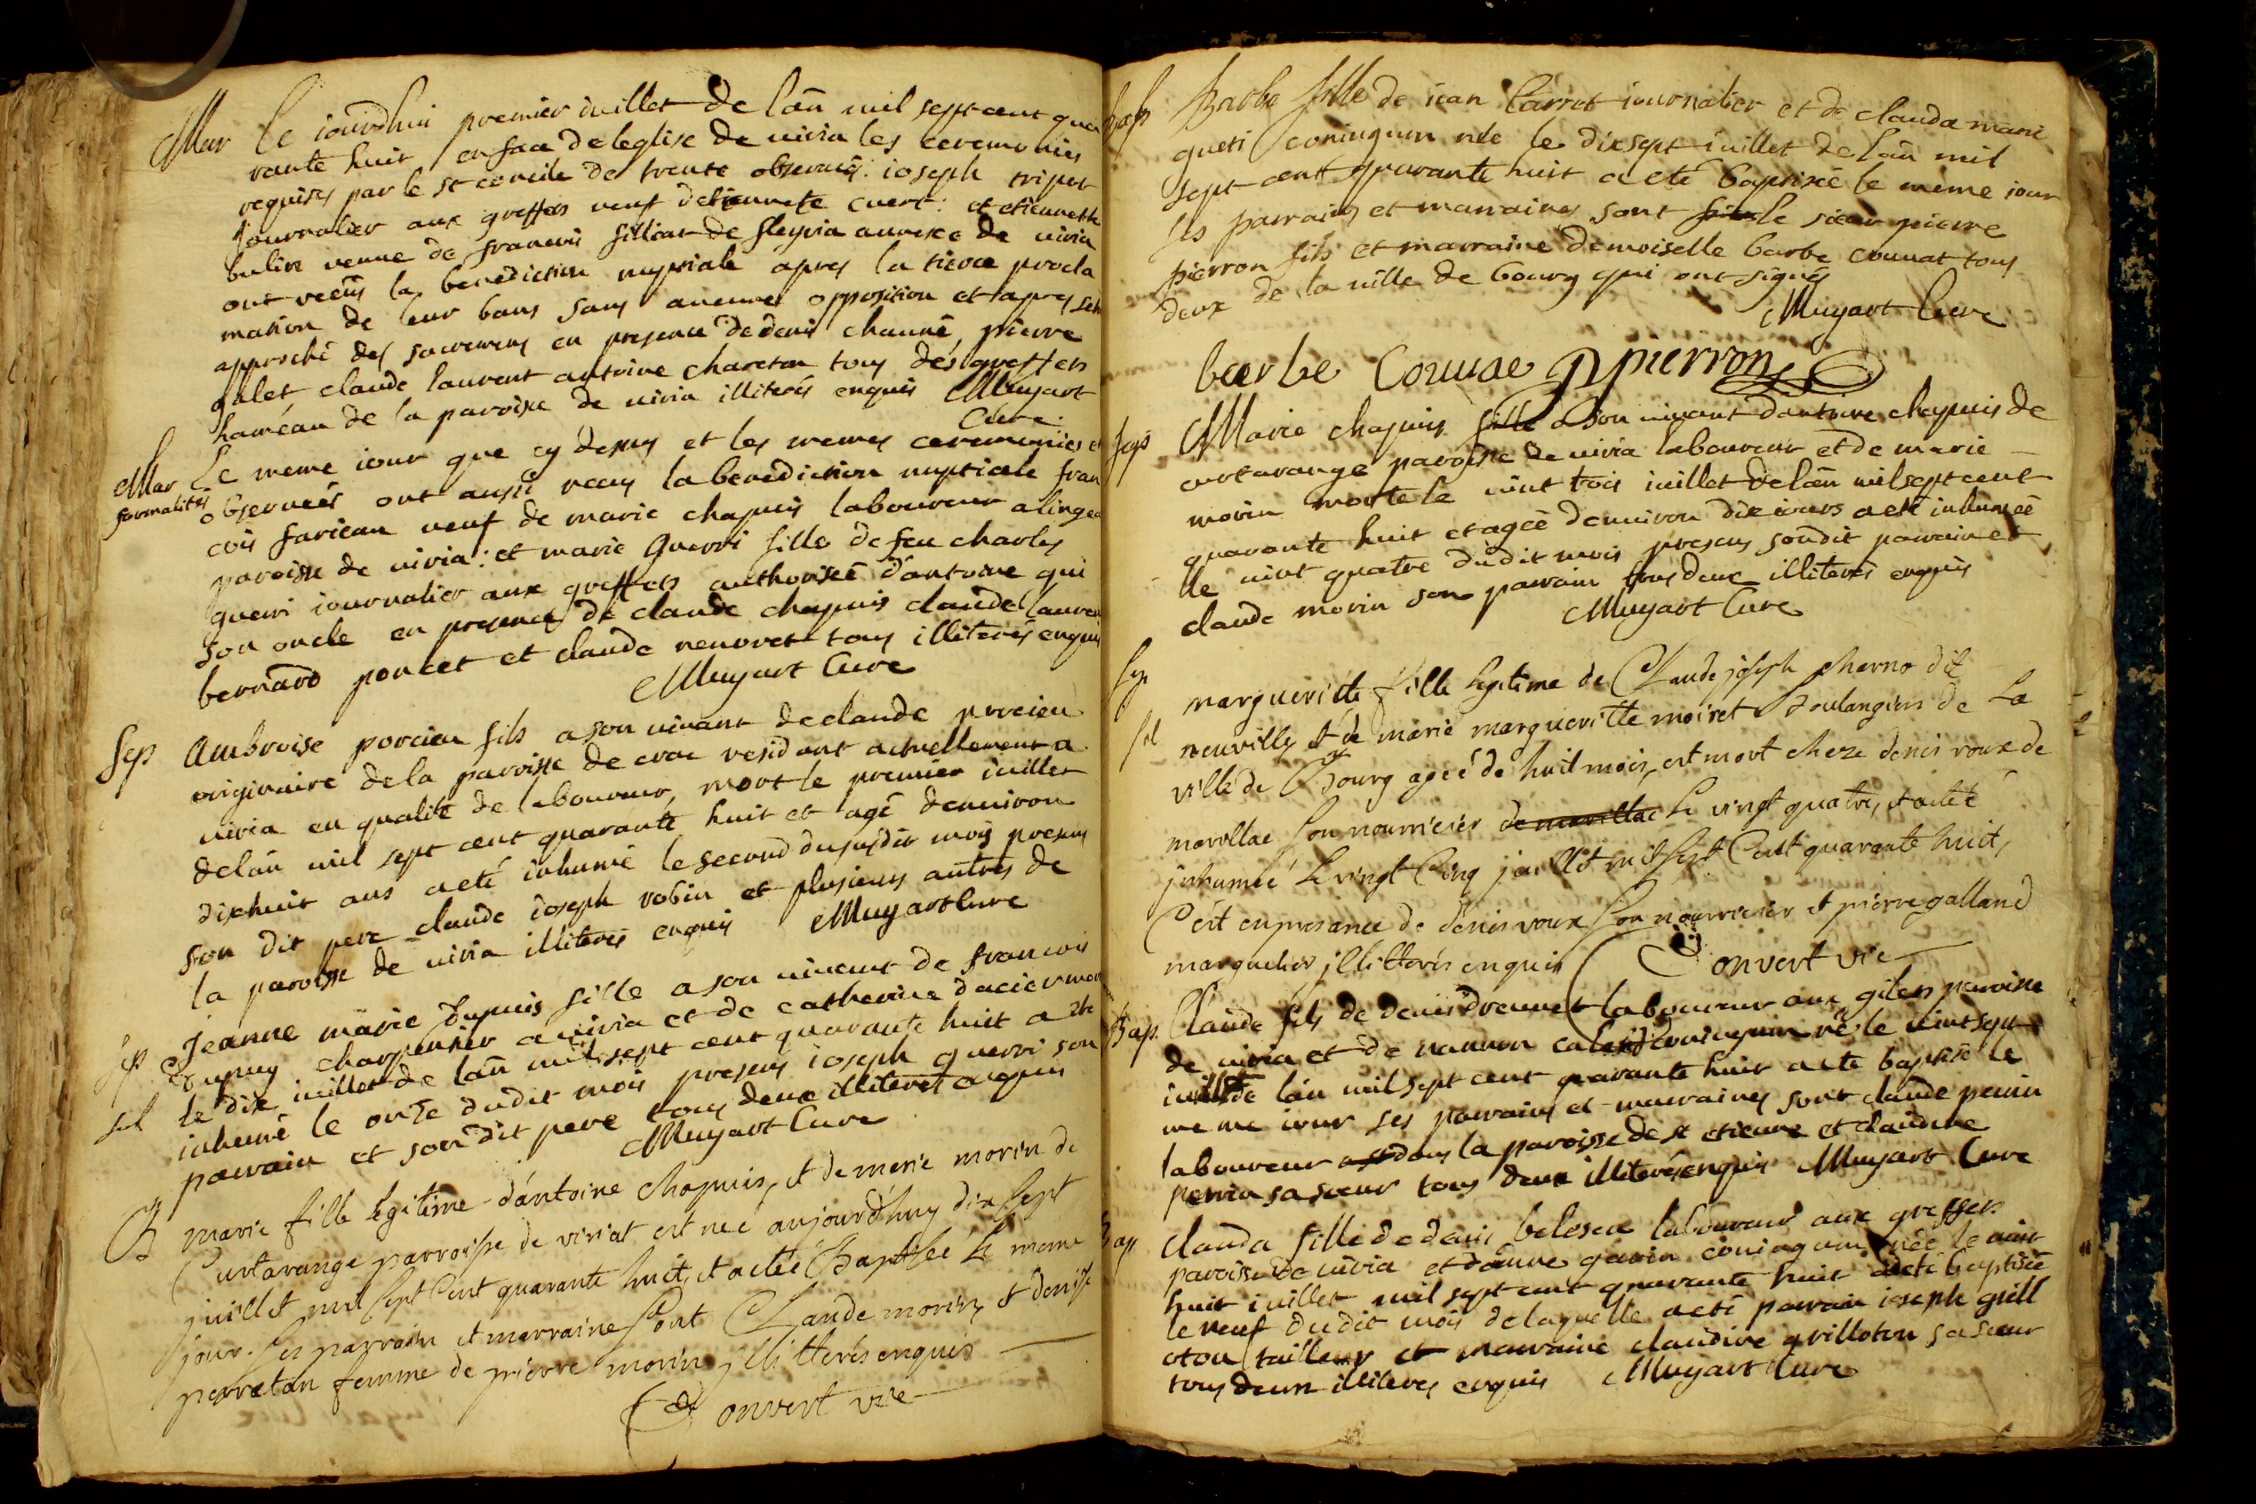 Mar Le iourdhui premier iuillet de lan mil sept cent qua
rante huit en face de leglise de viria les ceremonies
requises par le st concile de trente observées: ioseph tripot
journalier aux greffets veuf detiennete cuert: et etiennette
bulin veuve de francois filliat de fleyria annexe de viria
ont recûs la benediction nuptiale apres la tierce procla
mation de leur bans sans aucune opposition et apres setre
approché des sacremens en presence de denis channé pierre
galet claude laurent antoine chareton tous des greffets
haméau de la paroisse de viria illiterés enquis Muyart
Cure
Mar Le meme iour que cy desus et les memes ceremonies et
formalités observeés ont aussi recus la benediction nuptiale fran
cois farieau veuf de marie chapuis laboureur a lingea
paroisse de viria: et marie guerri fille de feu charles
guerri iournalier aux greffets authorisée d'antoine gui
son oncle en presence de claude chapuis claude lauren
bernard poncet et claude renoret tous illiterés enquis
Muyart Cure
Sep Ambroise porcieu fils a son vivant de claude porcieu
originaire de la paroisse de crac residant actuellement a
viria en qualité de laboureur, mort le premier iuillet
de lân mil sept cent quaranté huit et agé denviron
dixhuit ans a eté inhumé le second du susdit mois presens
son dit pere claude ioseph robin et plusieurs autres de
la paroisse de viria illiterés enquis Muyart Cure
Sep Jeanne marie dupuis fille a son vivant de francois
dupuy charpentier a viria et de catherine daciermor
sol le dix iuillet de lân mil sept cent quarante huit a ete
inhumé le onze dudit mois presens ioseph guerri son
parrain et son dit pere tous deux illiterés enquis
Muyart Cure
B marie fille legitime d'antoine chapuis, et de marie morin de
Curtarange parroisse de viriat est neé aujourd'huy dix sept
juillet mil sept Cent quarante huit, et a eteé Baptisée le meme
jour. ses parrain et marraine sont Claude morin et denise
perretan femme de pierre morin illitterés enquis
Convert vre
bap Barbe fille de iean Carrot iournalier et de clauda mari
gueti coniugum née le dixsept iuillet de lân mil
sept cent quarante huit a eté baptisée le meme iour
ses parrains et marraines sont le sieur pierre
pierron fils et marraine demoiselle barbe couuat tous
deux de la ville de bourg qui ont signés
Muyart Cure
barbe Couuae Ppierron
sep Marie chapuis fille a son vivant dantoine chapuis de
curtarange paroisse de viria laboureur et de marie
morin morte le vint trois iuillet de lân mil sept cent
quarante huit et ageé denviron dix iours a eté inhumée
le vint quatre dudit mois presens sondit parrain et
claude morin son parrain tous deux illiterés enquis
Muyart Cure
Sep margueritte fille legitime de Claude joseph charno dit
sol neuville, et de marie margueritte moiret Boulangiers de la
ville de Bourg ageé de huit mois, est mort cheze denis roux de
marillac son nourricier de marillac le vingt quatre, et a eté
jnhumeé le vingt Cinq juillet mil sept Cent quarante huit,
C'est en presance de denis roux son nourricier et pierre galland
marguelier jllitterés enquis Convert vre
Bap. Claude fils de denis drevnet laboureur aux gilets paroisse
de viria et de nannon coniugum né le vint sept
iuillet de lân mil sept cent quarante huit a ete baptisé le
meme iour ses parrains et marraines sont claude perrin
laboureur dans la paroisse de st etienne et claudine
perrin sa soeur tous deux illiterés enquis Muyart Cure
Bap clauda fille de denis belosca laboureur aux greffets
paroisse de viria et danne gavin coniugum née le vint
huit iuillet mil sept cent quarante huit a eté baptisée
le neuf dudit mois de laquelle a eté parrain ioseph grill
oton tailleur et marraine claudine grilloton sa soeur
tous deux illiterés enquis Muyart Cure